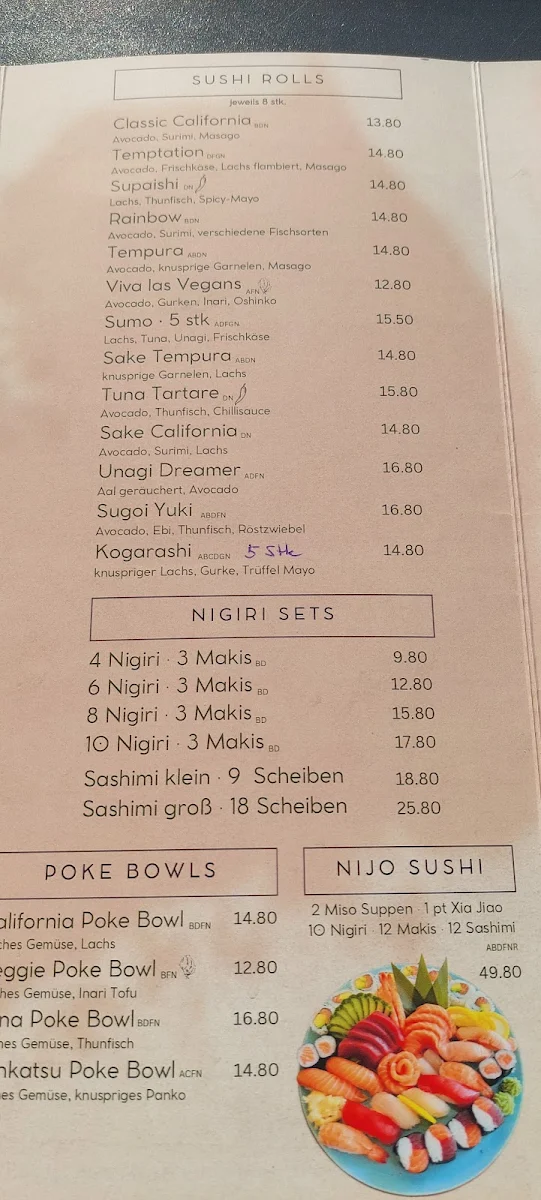 SUSHI ROLLS
jeweils 8 stk.
Classic California BDN 13.80
Avocado, Surimi, Masago
Temptation DFGN 14.80
Avocado, Frischkäse, Lachs flambiert, Masago
Supaishi DN 14.80
Lachs, Thunfisch, Spicy-Mayo
Rainbow BDN 14.80
Avocado, Surimi, verschiedene Fischsorten
Tempura ABDN 14.80
Avocado, knusprige Garnelen, Masago
Viva las Vegans AFN 12.80
Avocado, Gurken, Inari, Oshinko
Sumo · 5 stk ADFGN 15.50
Lachs, Tuna, Unagi, Frischkäse
Sake Tempura ABDN 14.80
knusprige Garnelen, Lachs
Tuna Tartare DN 15.80
Avocado, Thunfisch, Chillisauce
Sake California DN 14.80
Avocado, Surimi, Lachs
Unagi Dreamer ADFN 16.80
Aal geräuchert, Avocado
Sugoi Yuki ABDFN 16.80
Avocado, Ebi, Thunfisch, Röstzwiebel
Kogarashi ABCDGN 5 Stk 14.80
knuspriger Lachs, Gurke, Trüffel Mayo
NIGIRI SETS
4 Nigiri · 3 Makis BD 9.80
6 Nigiri · 3 Makis BD 12.80
8 Nigiri · 3 Makis BD 15.80
10 Nigiri · 3 Makis BD 17.80
Sashimi klein · 9 Scheiben 18.80
Sashimi groß · 18 Scheiben 25.80
POKE BOWLS
alifornia Poke Bowl BDFN 14.80
ches Gemüse, Lachs
eggie Poke Bowl BFN 12.80
hes Gemüse, Inari Tofu
na Poke Bowl BDFN 16.80
nes Gemüse, Thunfisch
nkatsu Poke Bowl ACFN 14.80
es Gemüse, knuspriges Panko
NIJO SUSHI
2 Miso Suppen · 1 pt Xia Jiao
10 Nigiri · 12 Makis · 12 Sashimi
ABDFNR
49.80